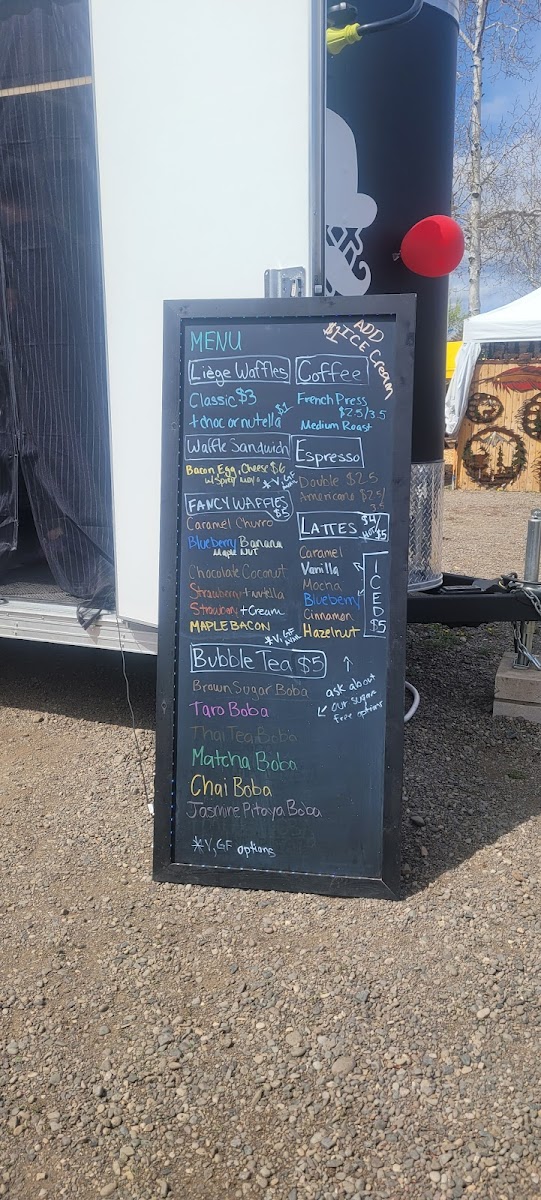 MENU
ADD
$1 ICE Cream
Liège Waffles
Classic $3
+ choc or nutella $1
Waffle Sandwich
Bacon, Egg, Cheese $6
w/ Spicy Mayo
*V, GF
FANCY WAFFLES
$5
Caramel Churro
Blueberry Banana
Maple NUT
Chocolate Coconut
Strawberry + nutella
Strawberry + Cream
MAPLE BACON
*V, GF
AVAIL
Coffee
French Press
$2.5/3.5
Medium Roast
Espresso
Double $2.5
Americano $2.5/
LATTES $4
HOT/$5
Caramel
Vanilla
Mocha
Blueberry
Cinnamon
Hazelnut
ICED
$5
Bubble Tea $5
Brown Sugar Boba
Taro Boba
Thai Tea Boba
Matcha Boba
Chai Boba
Jasmine Pitaya Boba
ask about
our sugar
free options
*V, GF options